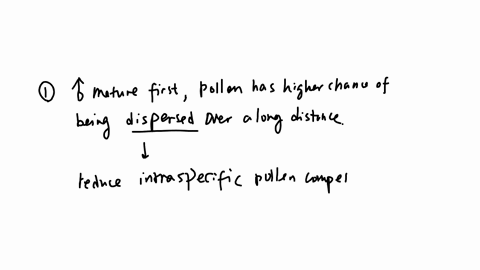 ① ♂ mature first, pollen has higher chance of
being dispersed over a long distance.
↓
reduce intraspecific pollen compet